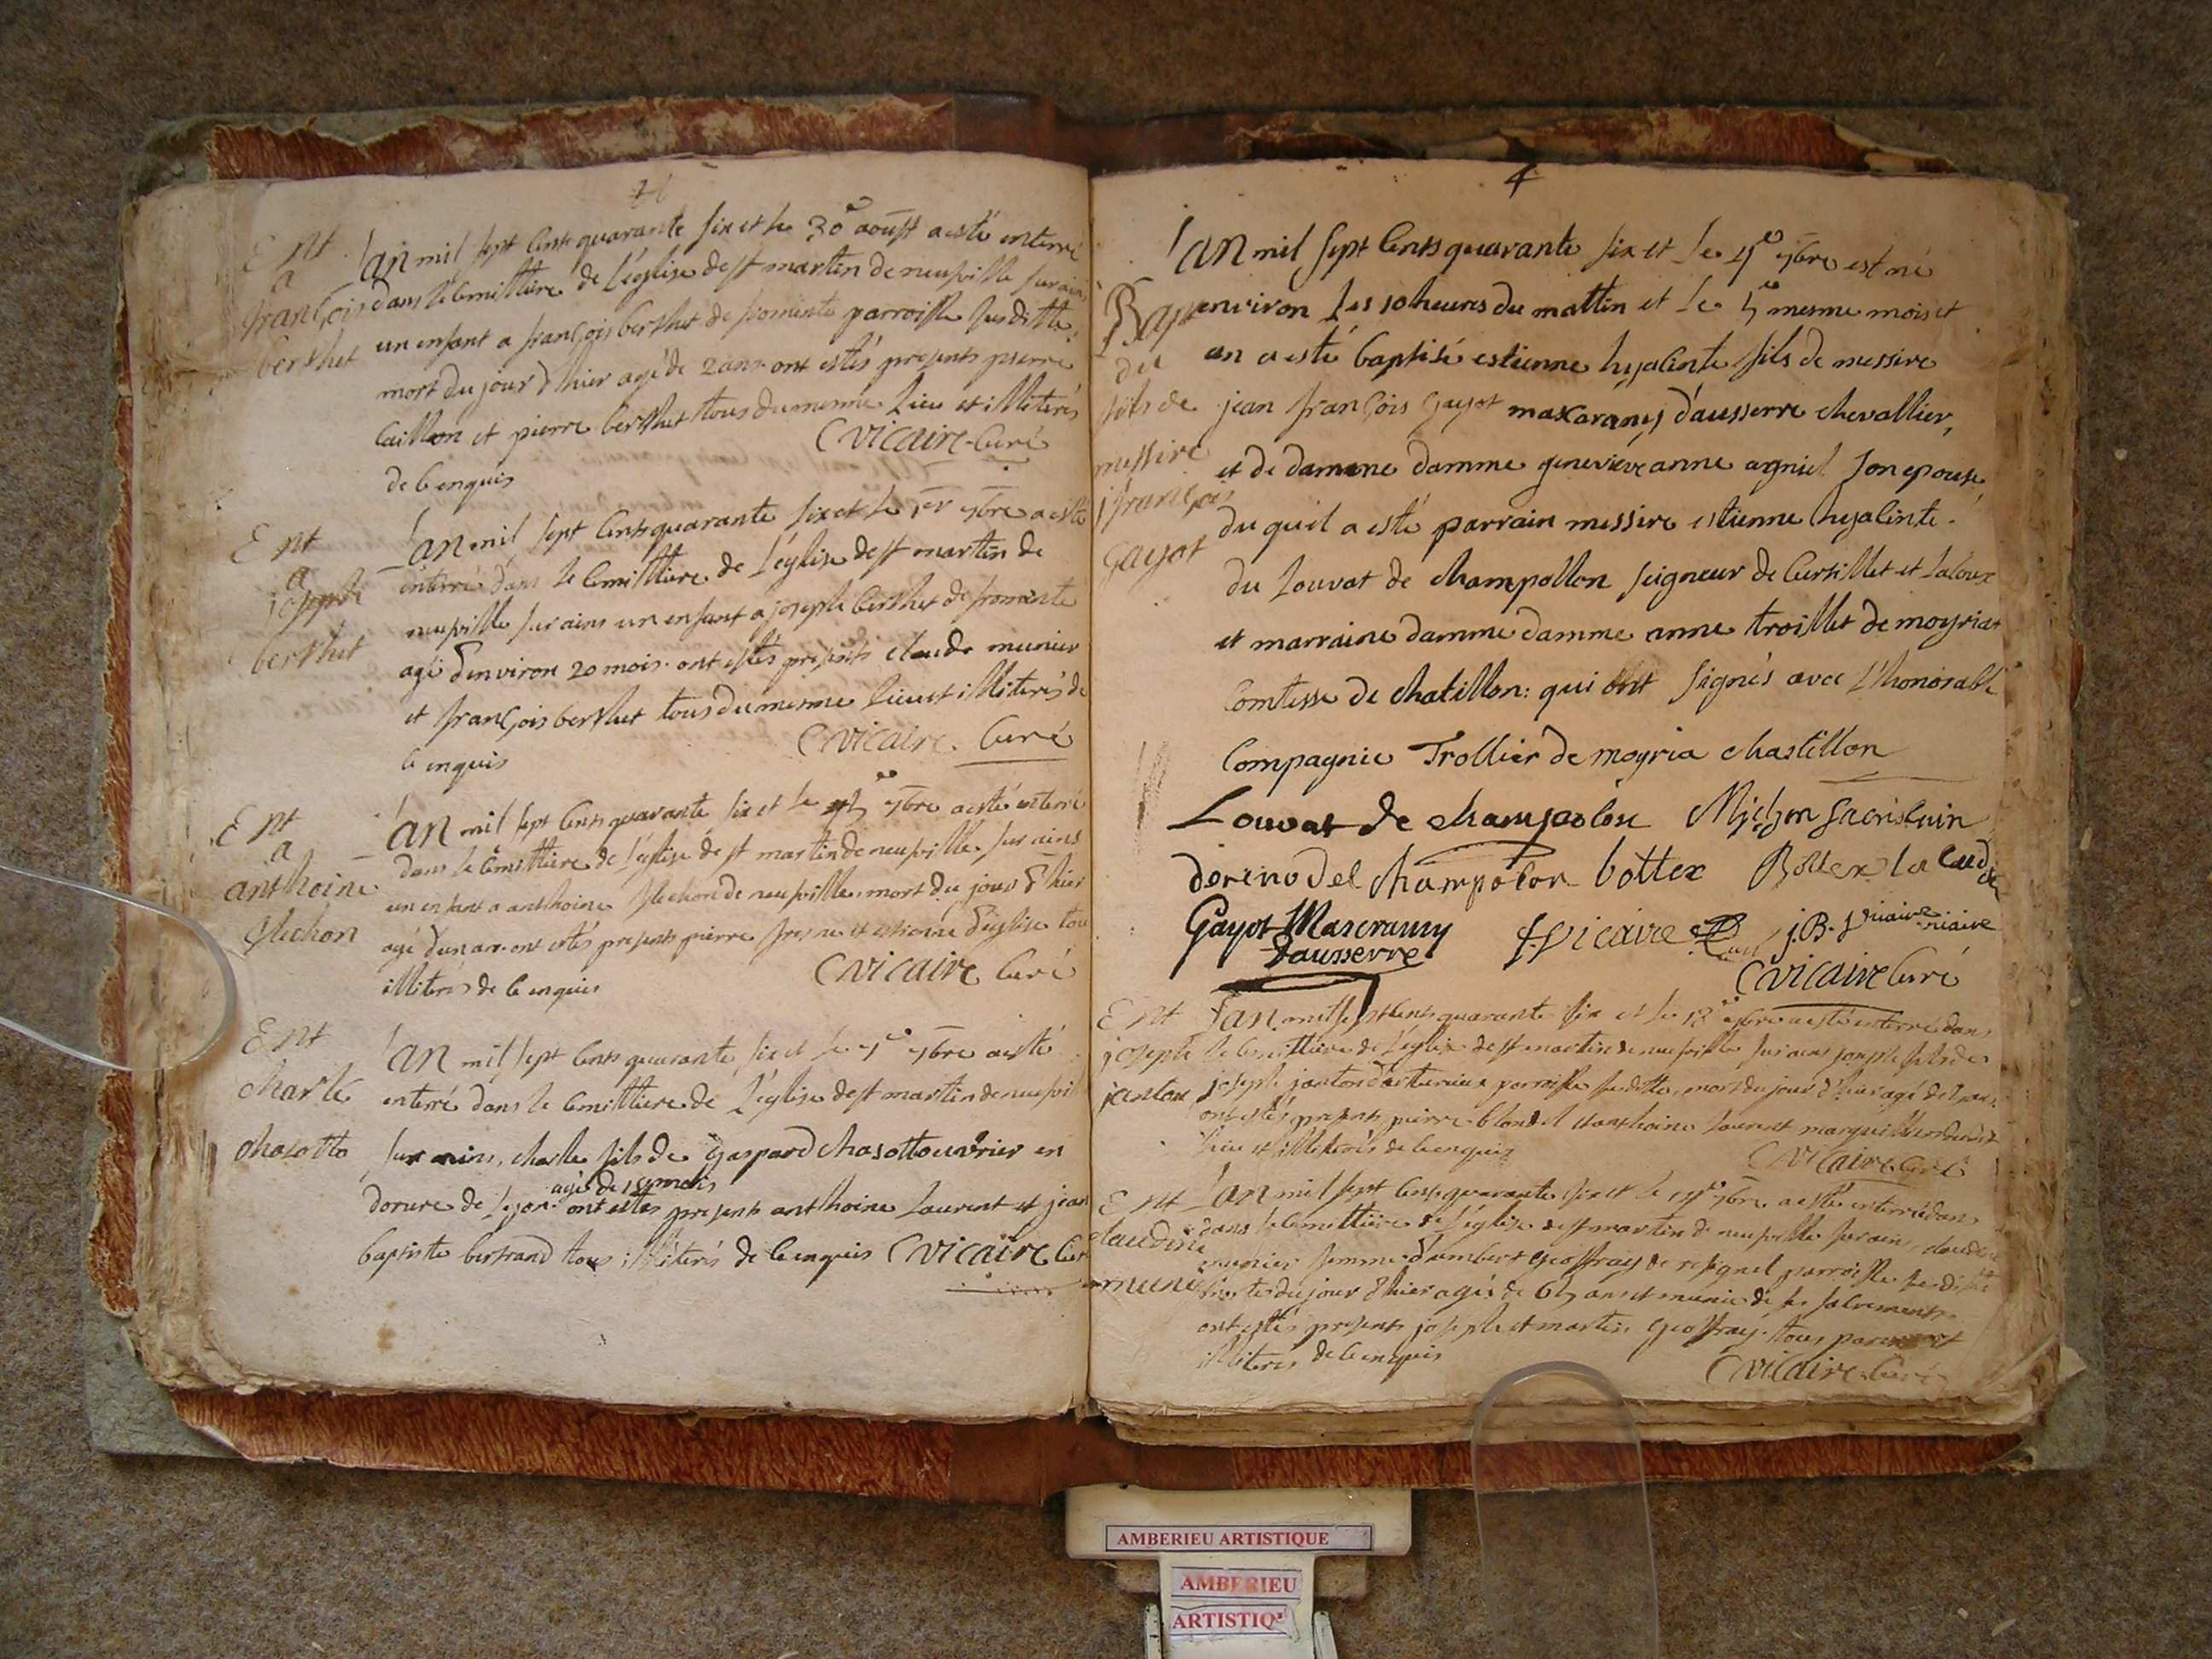 Ent
a
françois
berthet
Lan mil sept cents quarante six et le 30e aoust a esté enterré
dans le cemittiere de l'eglise de st martin de neufville sur ains
un enfant a françois berthet de fromente parroisse susditte
mort du jour d'hier agé de 2 ans. ont estés presents pierre
caillon et pierre berthet tous du mesme lieu et illiterés
de ce enquis
Cvicaire Curé
Ent
a
joseph
berthet
Lan mil sept cents quarante six et le 1er 7bre a esté
enterré dans le cemittiere de l'eglise de st martin de
neufville sur ains un enfant a joseph berthet de fromente
agé d'environ 20 mois. ont estés presents claude munier
et françois berthet tous du mesme lieu et illiterés de
ce enquis
Cvicaire Curé
Ent
a
anthoine
flechon
Lan mil sept cents quarante six et le 7bre a esté enterré
dans le cemittiere de l'eglise de st martin de neufville sur ains
un enfant a anthoine flechon de neufville mort du jour d'hier
agé d'un an. ont estés presents pierre et estienne d'eglise tou
illiterés de ce enquis
Cvicaire Curé
Ent
charle
chasotto
Lan mil sept cents quarante six et le 7bre a esté
enterré dans le cemittiere de l'eglise de st martin de neufvil
sur ains, charle fils de gaspard chasotto ouvrier en
agé de mois
dorure de Lyon. ont estés presents anthoine Laurent et jean
baptiste bertrand tous illiterés de ce enquis Cvicaire Cur
4
Lan mil sept cents quarante six et le 4e 7bre est né
Bap
du
fils de
messire
j françois
Gayot
environ les 10 heures du mattin et le 5e mesme mois et
an a esté baptisé estienne hyacinte fils de messire
jean françois gayot mascarany d'ausserre chevallier,
et de damme damme genevieve anne agniel son epouse
du quel a esté parrain messire estienne hyacinte
du Louvat de champollon seigneur de Cursillet et Laloux
et marraine damme damme anne trollier de moyriat
Comtesse de chatillon: qui ont signés avec l'honorable
Compagnie Trollier de moyria chastillon
Louvat de champolon Michon sacristain
dorino del champolon bottex Bottex la
Gayot Mascrany
Dausserre
Vicaire
j.B. Vicaire
Cvicaire Curé
Ent
joseph
janton
Lan mil sept cents quarante six et le 7bre a esté enterré dans
le cemittiere de l'eglise de st martin de neufville sur ains joseph fils de
joseph janton parroisse susditte, mort du jour d'hier agé de
ont estés presents pierre blondel et anthoine Laurent marguillier dudit
lieu et illiterés de ce enquis
Cvicaire Curé
Ent
claudine
munie
Lan mil sept cents quarante six et le 7bre a esté enterré dans
dans le cemittiere de l'eglise de st martin de neufville sur ains, claudine
munier femme d'umbert geoffray de resignel parroisse susditte
morte du jour d'hier agée de 65 ans et munie de ses sacrements
ont estés presents joseph et martin geoffray. tous parents et
illiteres de ce enquis
Cvicaire Curé
AMBERIEU ARTISTIQUE
AMBERIEU
ARTISTIQ